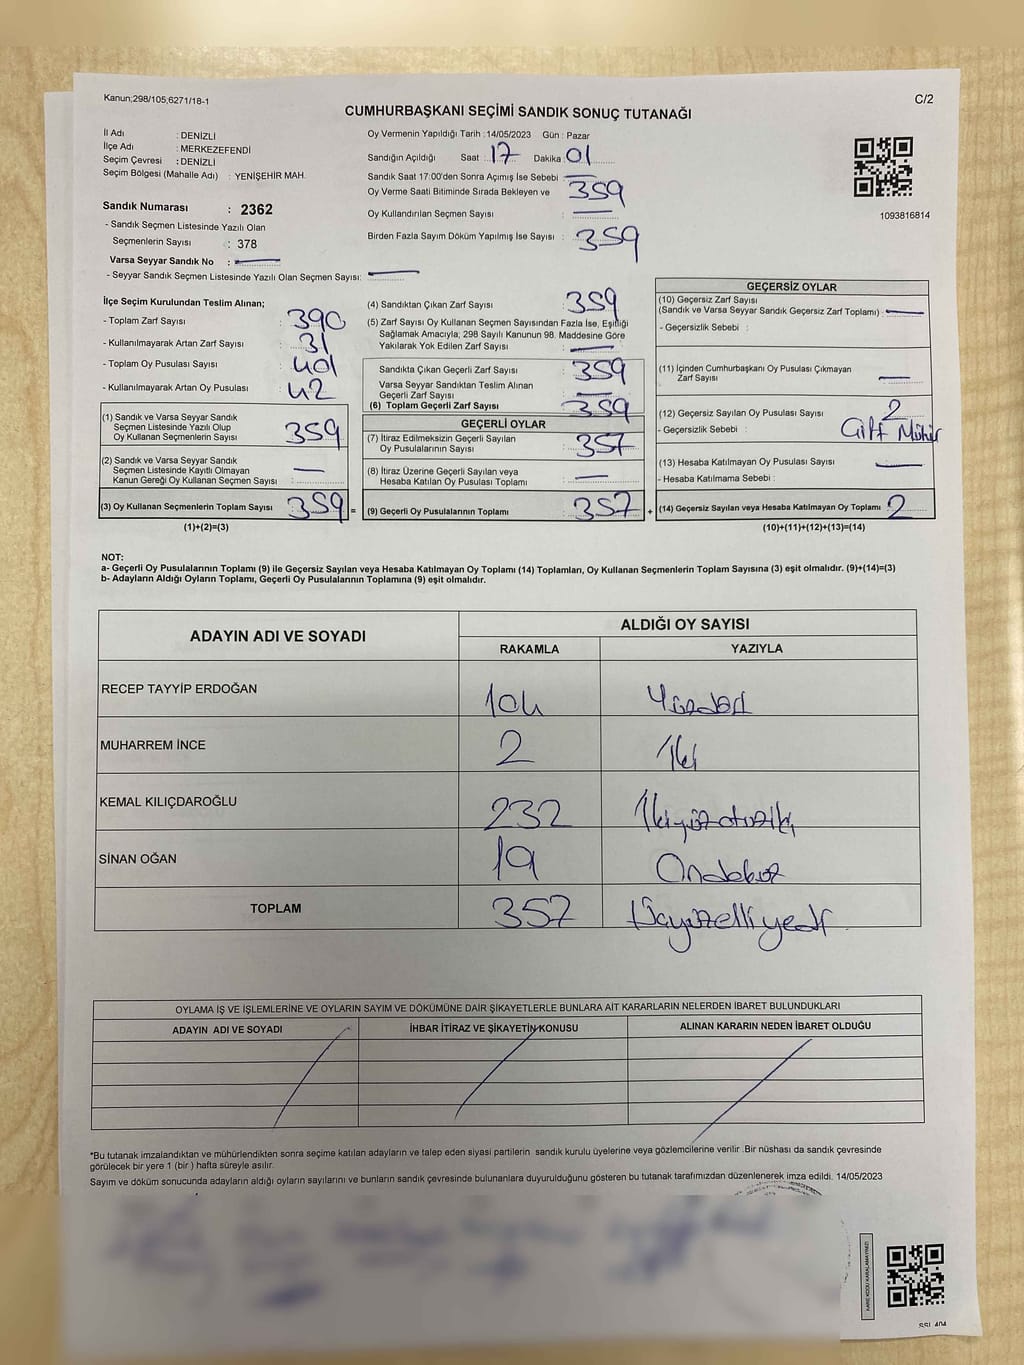 Kanun;298/105;6271/18-1
C/2
CUMHURBAŞKANI SEÇİMİ SANDIK SONUÇ TUTANAĞI
İl Adı : DENİZLİ
İlçe Adı : MERKEZEFENDİ
Seçim Çevresi : DENİZLİ
Seçim Bölgesi (Mahalle Adı) : YENİŞEHİR MAH.
Sandık Numarası : 2362
- Sandık Seçmen Listesinde Yazılı Olan
Seçmenlerin Sayısı : 378
Varsa Seyyar Sandık No :
- Seyyar Sandık Seçmen Listesinde Yazılı Olan Seçmen Sayısı:
Oy Vermenin Yapıldığı Tarih : 14/05/2023 Gün : Pazar
Sandığın Açıldığı Saat : 17 Dakika : 01
Sandık Saat 17:00'den Sonra Açımış İse Sebebi :
Oy Verme Saati Bitiminde Sırada Bekleyen ve 359
Oy Kullandırılan Seçmen Sayısı :
Birden Fazla Sayım Döküm Yapılmış İse Sayısı : 359
1093816814
İlçe Seçim Kurulundan Teslim Alınan;
- Toplam Zarf Sayısı : 390
- Kullanılmayarak Artan Zarf Sayısı : 31
- Toplam Oy Pusulası Sayısı : 401
- Kullanılmayarak Artan Oy Pusulası : 42
(1) Sandık ve Varsa Seyyar Sandık
Seçmen Listesinde Yazılı Olup
Oy Kullanan Seçmenlerin Sayısı : 359
(2) Sandık ve Varsa Seyyar Sandık
Seçmen Listesinde Kayıtlı Olmayan
Kanun Gereği Oy Kullanan Seçmen Sayısı :
(3) Oy Kullanan Seçmenlerin Toplam Sayısı : 359 =
(1)+(2)=(3)
(4) Sandıktan Çıkan Zarf Sayısı : 359
(5) Zarf Sayısı Oy Kullanan Seçmen Sayısından Fazla İse, Eşitliği
Sağlamak Amacıyla; 298 Sayılı Kanunun 98. Maddesine Göre
Yakılarak Yok Edilen Zarf Sayısı :
Sandıkta Çıkan Geçerli Zarf Sayısı : 359
Varsa Seyyar Sandıktan Teslim Alınan
Geçerli Zarf Sayısı :
(6) Toplam Geçerli Zarf Sayısı : 359
GEÇERLİ OYLAR
(7) İtiraz Edilmeksizin Geçerli Sayılan
Oy Pusulalarının Sayısı : 357
(8) İtiraz Üzerine Geçerli Sayılan veya
Hesaba Katılan Oy Pusulası Toplamı :
(9) Geçerli Oy Pusulalarının Toplamı : 357 +
GEÇERSİZ OYLAR
(10) Geçersiz Zarf Sayısı
(Sandık ve Varsa Seyyar Sandık Geçersiz Zarf Toplamı) :
- Geçersizlik Sebebi :
(11) İçinden Cumhurbaşkanı Oy Pusulası Çıkmayan
Zarf Sayısı :
(12) Geçersiz Sayılan Oy Pusulası Sayısı : 2
- Geçersizlik Sebebi : Çift Mühür
(13) Hesaba Katılmayan Oy Pusulası Sayısı :
- Hesaba Katılmama Sebebi :
(14) Geçersiz Sayılan veya Hesaba Katılmayan Oy Toplamı : 2
(10)+(11)+(12)+(13)=(14)
NOT:
a- Geçerli Oy Pusulalarının Toplamı (9) ile Geçersiz Sayılan veya Hesaba Katılmayan Oy Toplamı (14) Toplamları, Oy Kullanan Seçmenlerin Toplam Sayısına (3) eşit olmalıdır. (9)+(14)=(3)
b- Adayların Aldığı Oyların Toplamı, Geçerli Oy Pusulalarının Toplamına (9) eşit olmalıdır.
ADAYIN ADI VE SOYADI
ALDIĞI OY SAYISI
RAKAMLA YAZIYLA
RECEP TAYYİP ERDOĞAN 104 Yüzdört
MUHARREM İNCE 2 İki
KEMAL KILIÇDAROĞLU 232 İkiyüzotuziki
SİNAN OĞAN 19 Ondokuz
TOPLAM 357 Üçyüzelliyedi
OYLAMA İŞ VE İŞLEMLERİNE VE OYLARIN SAYIM VE DÖKÜMÜNE DAİR ŞİKAYETLERLE BUNLARA AİT KARARLARIN NELERDEN İBARET BULUNDUKLARI
ADAYIN ADI VE SOYADI İHBAR İTİRAZ VE ŞİKAYETİN KONUSU ALINAN KARARIN NEDEN İBARET OLDUĞU
*Bu tutanak imzalandıktan ve mühürlendikten sonra seçime katılan adayların ve talep eden siyasi partilerin sandık kurulu üyelerine veya gözlemcilerine verilir .Bir nüshası da sandık çevresinde
görülecek bir yere 1 (bir ) hafta süreyle asılır.
Sayım ve döküm sonucunda adayların aldığı oyların sayılarını ve bunların sandık çevresinde bulunanlara duyurulduğunu gösteren bu tutanak tarafımızdan düzenlenerek imza edildi. 14/05/2023
KARE KODU KARALAMAYINIZ!